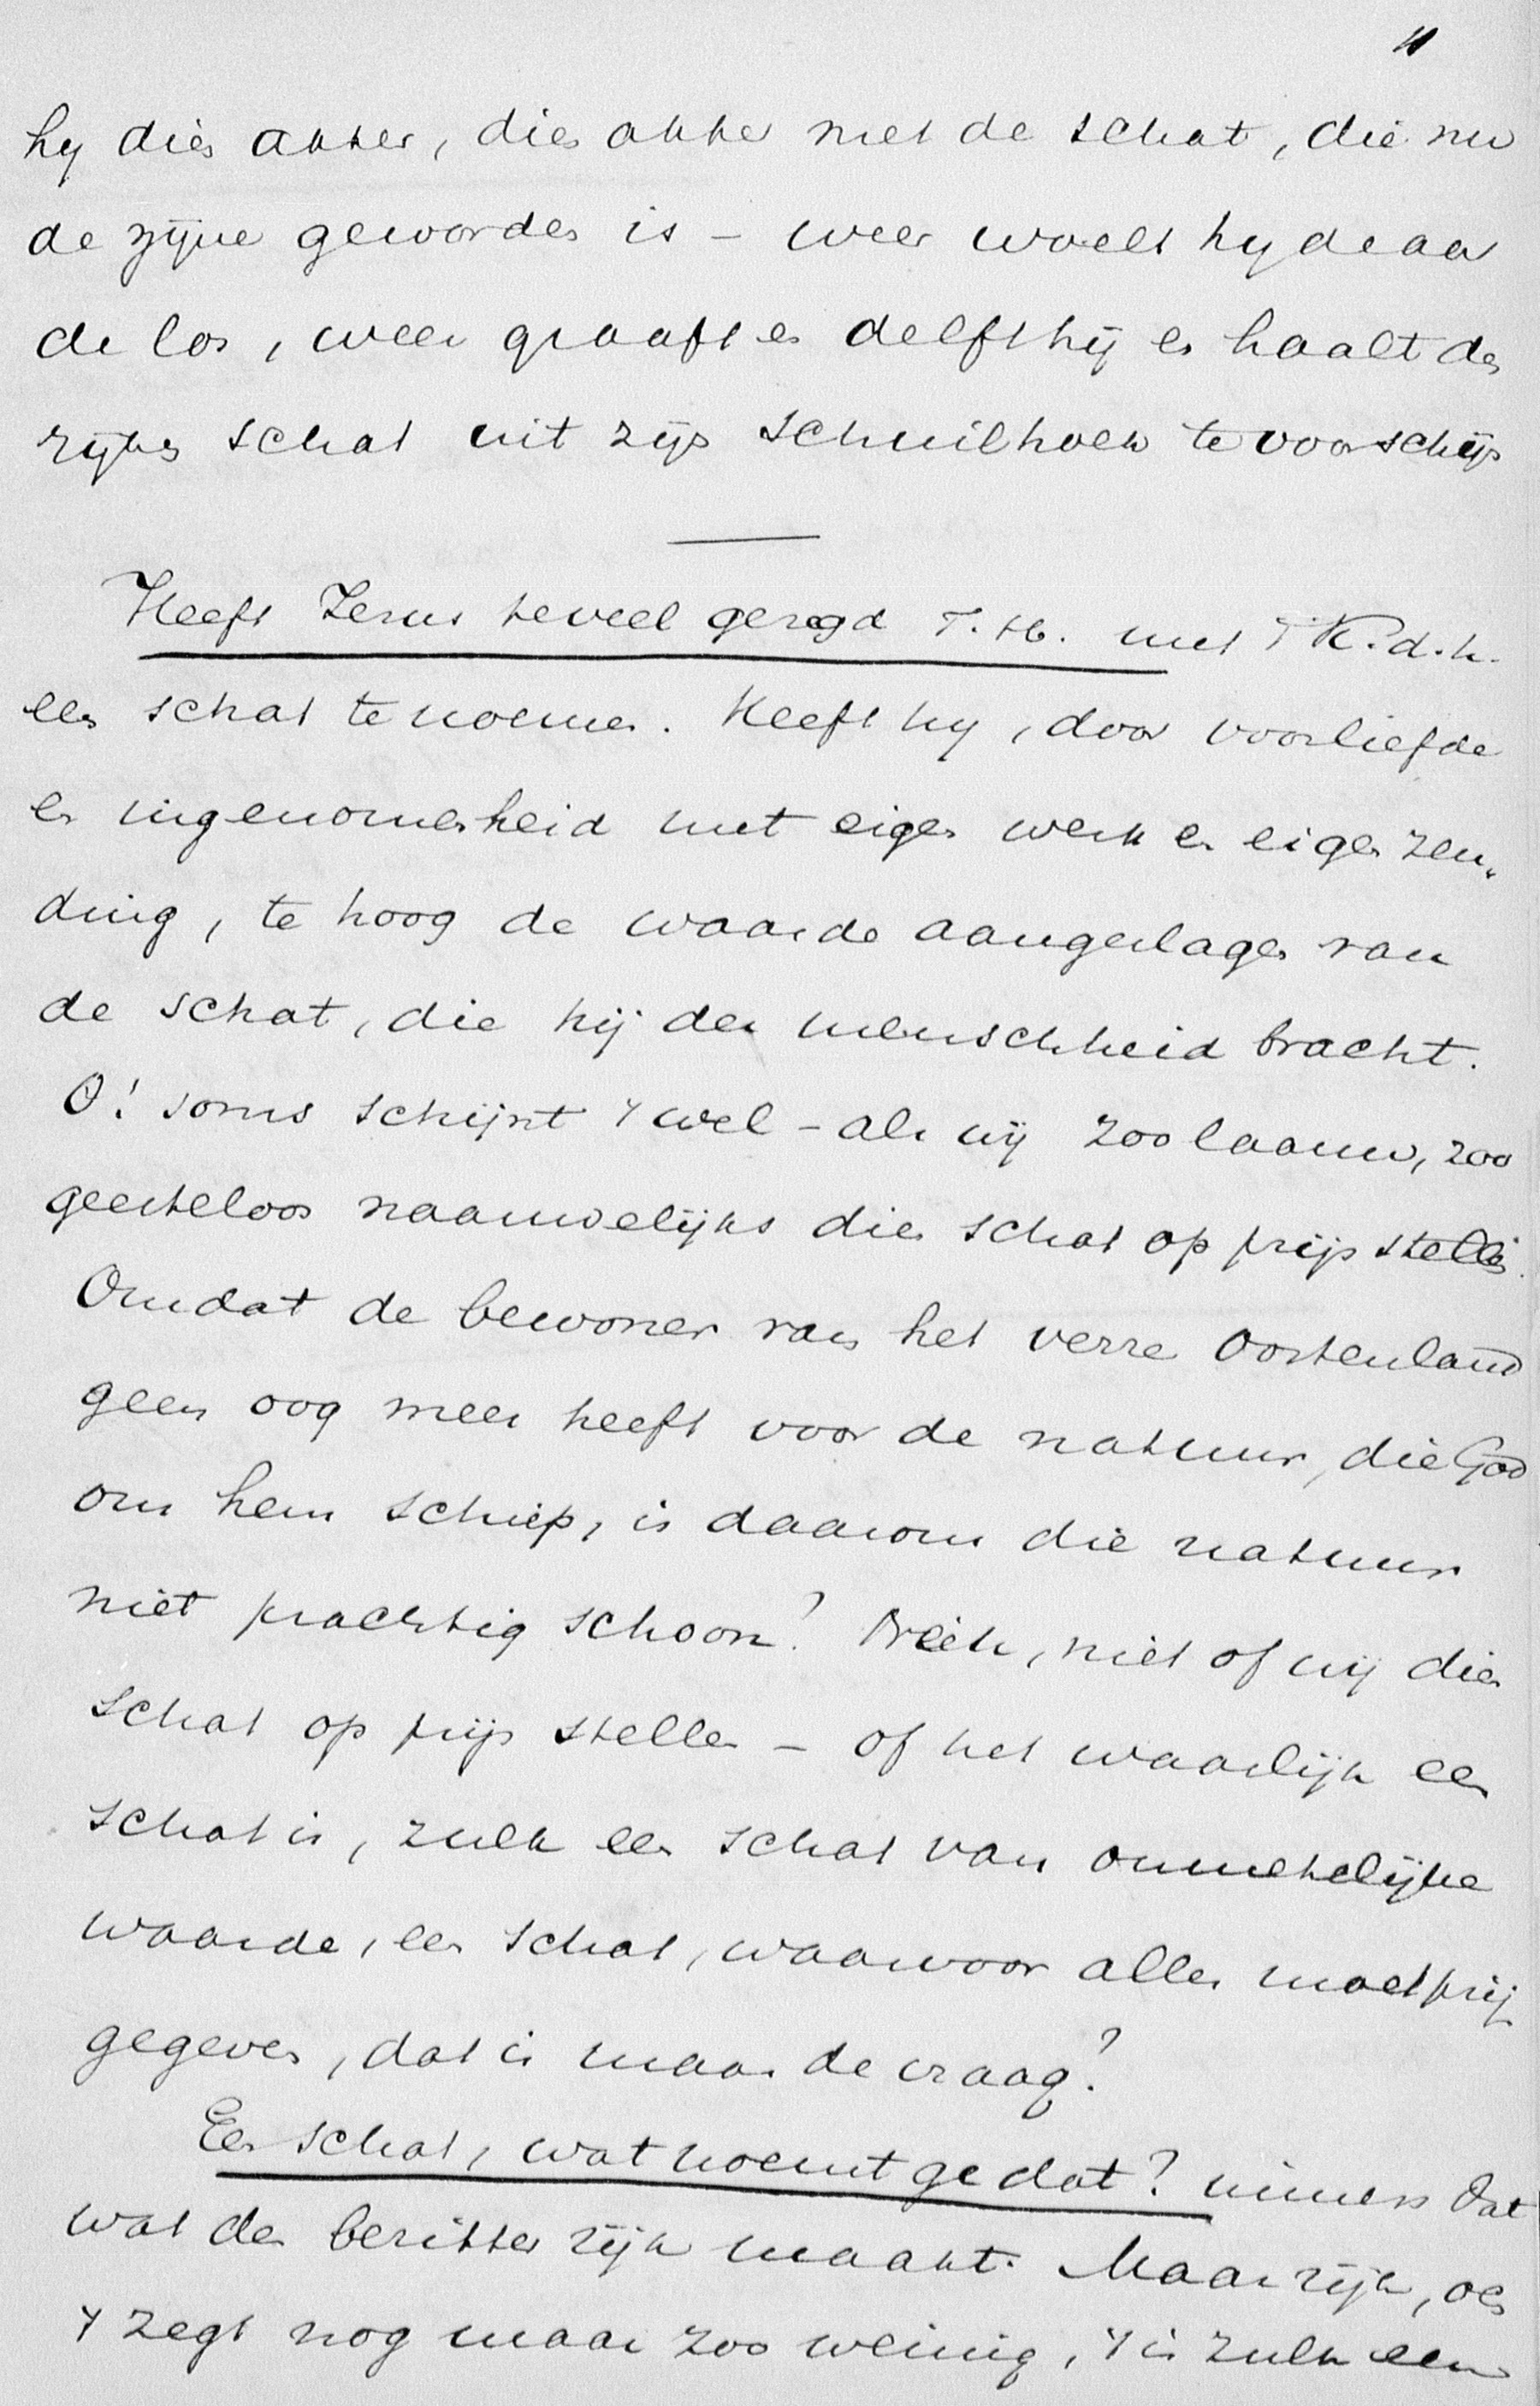 11
hij dien akker, dien akker met de schat, die nu
de zijne geworden is – weer woelt hij de aar
de los, weer graaft en delft hij en haalt den
rijken schat uit zijn schuilhoek te voorschijn
Heeft Jezus teveel gezegd T. H. met 't K. d. h.
een schat te noemen. Heeft hij, door voorliefde
en ingenomenheid met eigen werk en eigen zen„
ding, te hoog de waarde aangeslagen van
de schat, die hij der menschheid bracht.
O! soms schijnt 't wel – als wij zoo laauw, zoo
geesteloos naauwelijks dien schat op prijs stellen.
Omdat de bewoner van het verre Oostenland
geen oog meer heeft voor de natuur, die God
om hem schiep, is daarom die natuur
niet prachtig schoon? Neen, niet of wij dien
schat op prijs stellen – of het waarlijk een
schat is, zulk een schat van onmetelijke
waarde, een schat, waarvoor alles moet prijs
gegeven, dat is maar de vraag?
Een schat, wat noemt ge dat? immers dat
wat den bezitter rijk maakt. Maar rijk, och
't zegt nog maar zoo weinig, 't is zulk een